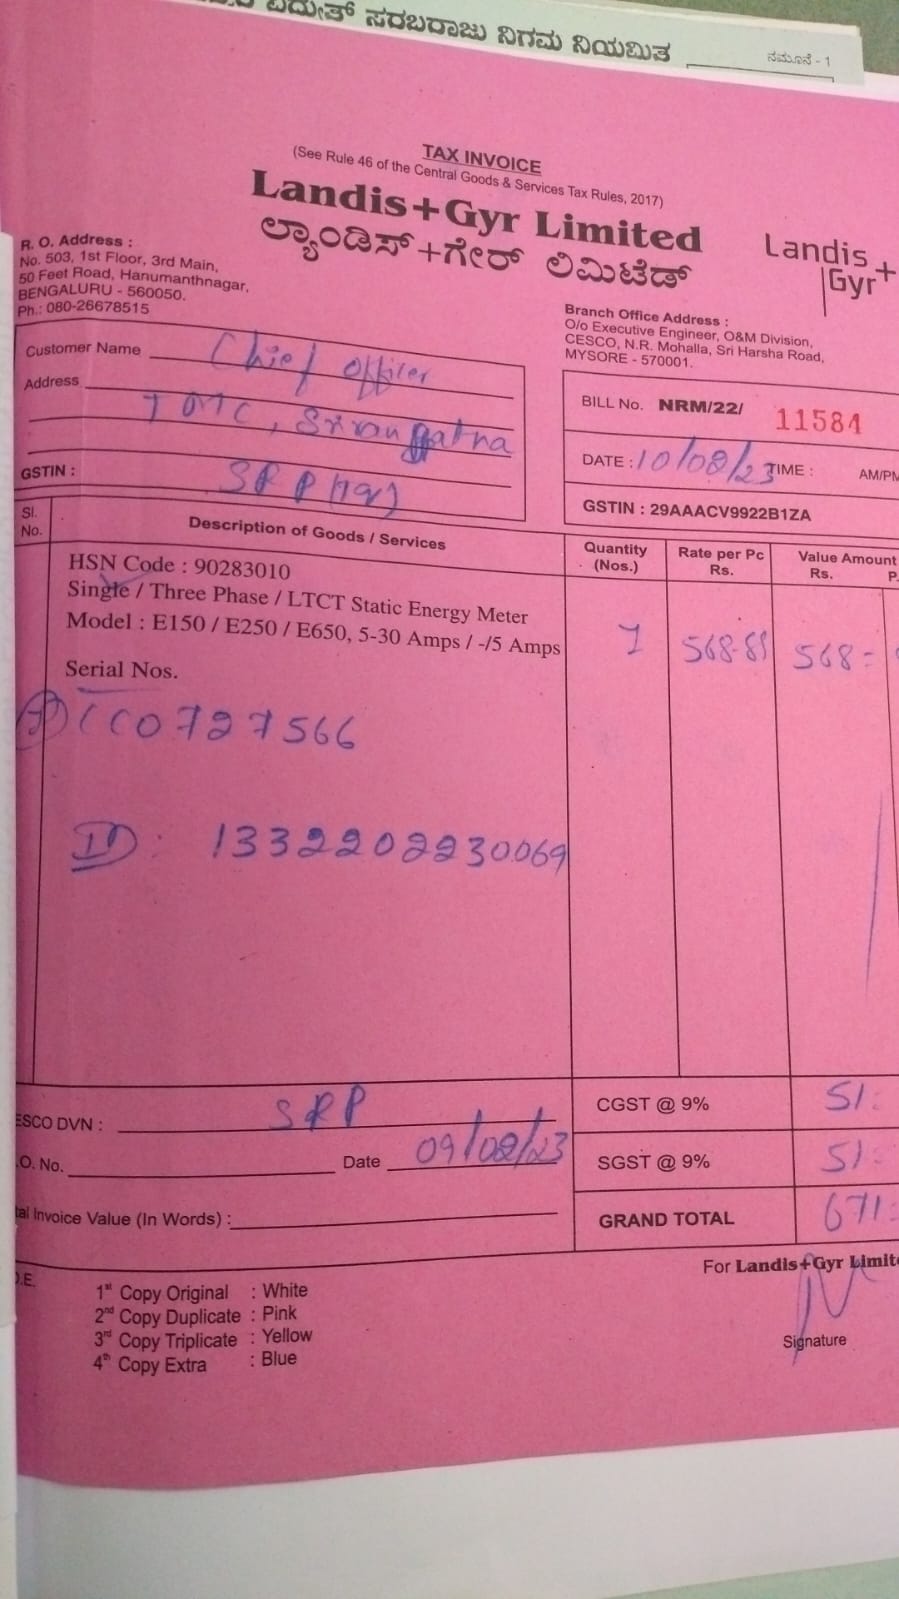 ವಿದ್ಯುತ್ ಸರಬರಾಜು ನಿಗಮ ನಿಯಮಿತ
ನಮೂನೆ - 1
TAX INVOICE
(See Rule 46 of the Central Goods & Services Tax Rules, 2017)
Landis+Gyr Limited
ಲ್ಯಾಂಡಿಸ್+ಗೇರ್ ಲಿಮಿಟೆಡ್
Landis+
Gyr+
R. O. Address :
No. 503, 1st Floor, 3rd Main,
50 Feet Road, Hanumanthnagar,
BENGALURU - 560050.
Ph.: 080-26678515
Branch Office Address :
O/o Executive Engineer, O&M Division,
CESCO, N.R. Mohalla, Sri Harsha Road,
MYSORE - 570001.
Customer Name Chief Officer
Address
TMC,
GSTIN : SRP
BILL No. NRM/22/ 11584
DATE : 10/08/23 TIME : AM/PM
GSTIN : 29AAACV9922B1ZA
Sl. No. Description of Goods / Services Quantity (Nos.) Rate per Pc Rs. Value Amount Rs. P.
HSN Code : 90283010
Single / Three Phase / LTCT Static Energy Meter
Model : E150 / E250 / E650, 5-30 Amps / -/5 Amps 1 568-81 568=
Serial Nos.
0727566
ID : 1332202230069
ESCO DVN : SRP
CGST @ 9% 51=
O. No. Date 09/08/23
SGST @ 9% 51=
tal Invoice Value (In Words) :
GRAND TOTAL 671=
.E.
For Landis+Gyr Limite
1st Copy Original : White
2nd Copy Duplicate : Pink
3rd Copy Triplicate : Yellow
4th Copy Extra : Blue
Signature